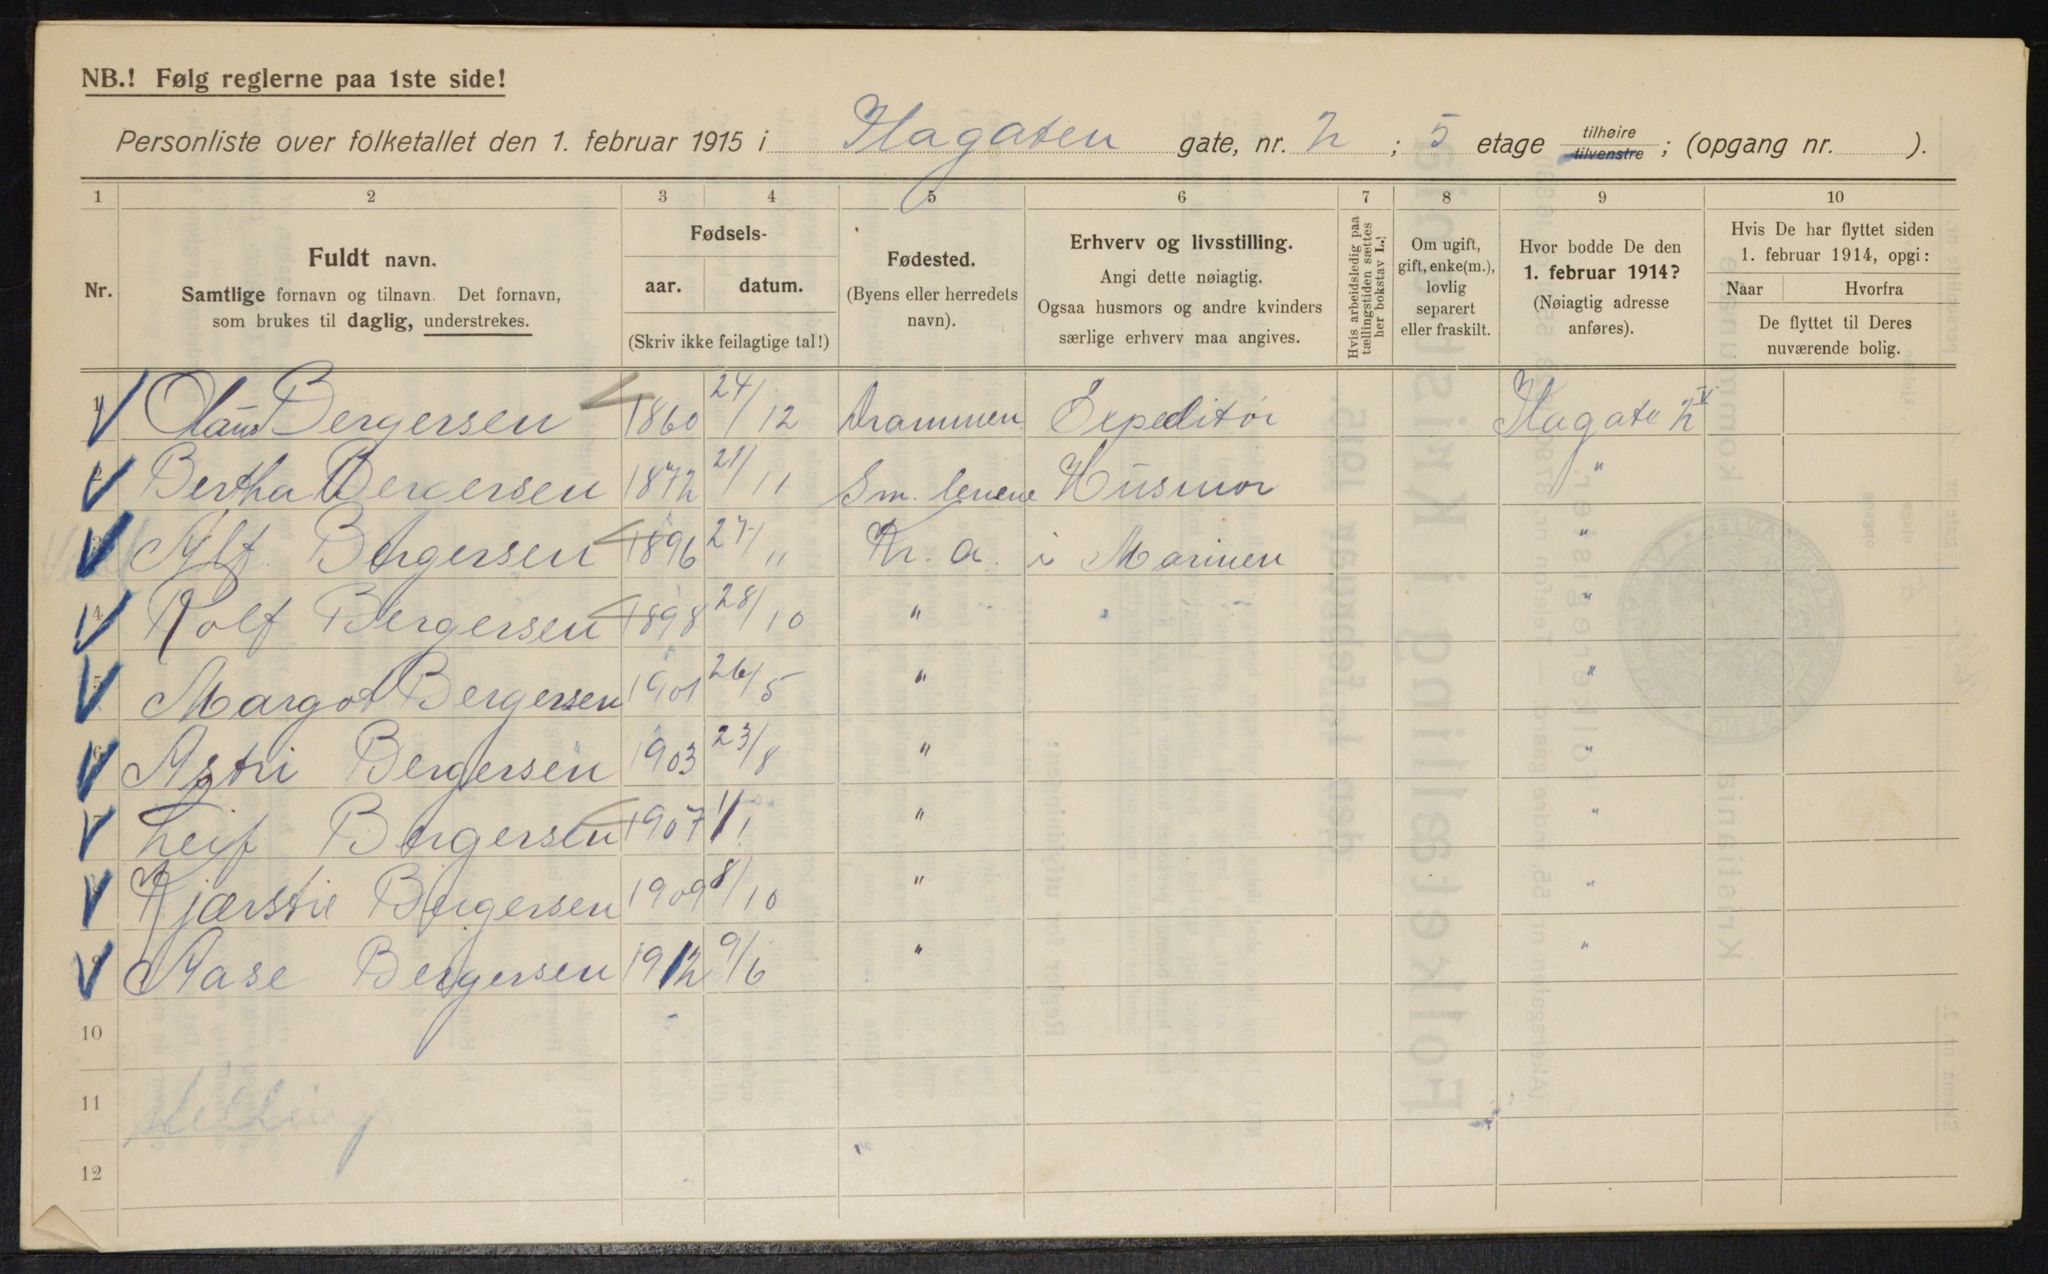 NB.! Følg reglerne paa 1ste side!
Personliste over folketallet den 1. februar 1915 i Ilagaten gate, nr. 2 ; 5 etage tilhøire tilvenstre ; (opgang nr. ).
1 2 3 4 5 6 7 8 9 10
Nr.
Fuldt navn.
Samtlige fornavn og tilnavn. Det fornavn,
som brukes til daglig, understrekes.
Fødsels-
aar. datum.
(Skriv ikke feilagtige tal!)
Fødested.
(Byens eller herredets
navn).
Erhverv og livsstilling.
Angi dette nøiagtig.
Ogsaa husmors og andre kvinders
særlige erhverv maa angives.
Hvis arbeidsledig paa
tællingstiden sættes
her bokstav L.!
Om ugift,
gift, enke(m.),
lovlig
separert
eller fraskilt.
Hvor bodde De den
1. februar 1914?
(Nøiagtig adresse
anføres).
Hvis De har flyttet siden
1. februar 1914, opgi:
Naar Hvorfra
De flyttet til Deres
nuværende bolig.
1 Olaus Bergersen 1860 24/12 Drammen Expeditør Ilagate 2 V
2 Bertha Bergersen 1872 21/11 Sm. lenene Husmor "
3 Alf Bergersen 1896 27/11 Kr. a. i Marinen "
4 Rolf Bergersen 1898 28/10 " "
5 Margot Bergersen 1901 26/5 " "
6 Astri Bergersen 1903 23/8 " "
7 Leif Bergersen 1907 1/1 " "
8 Kjærstie Bergersen 1909 8/10 " "
9 Aase Bergersen 1912 9/6 " "
10
11
12